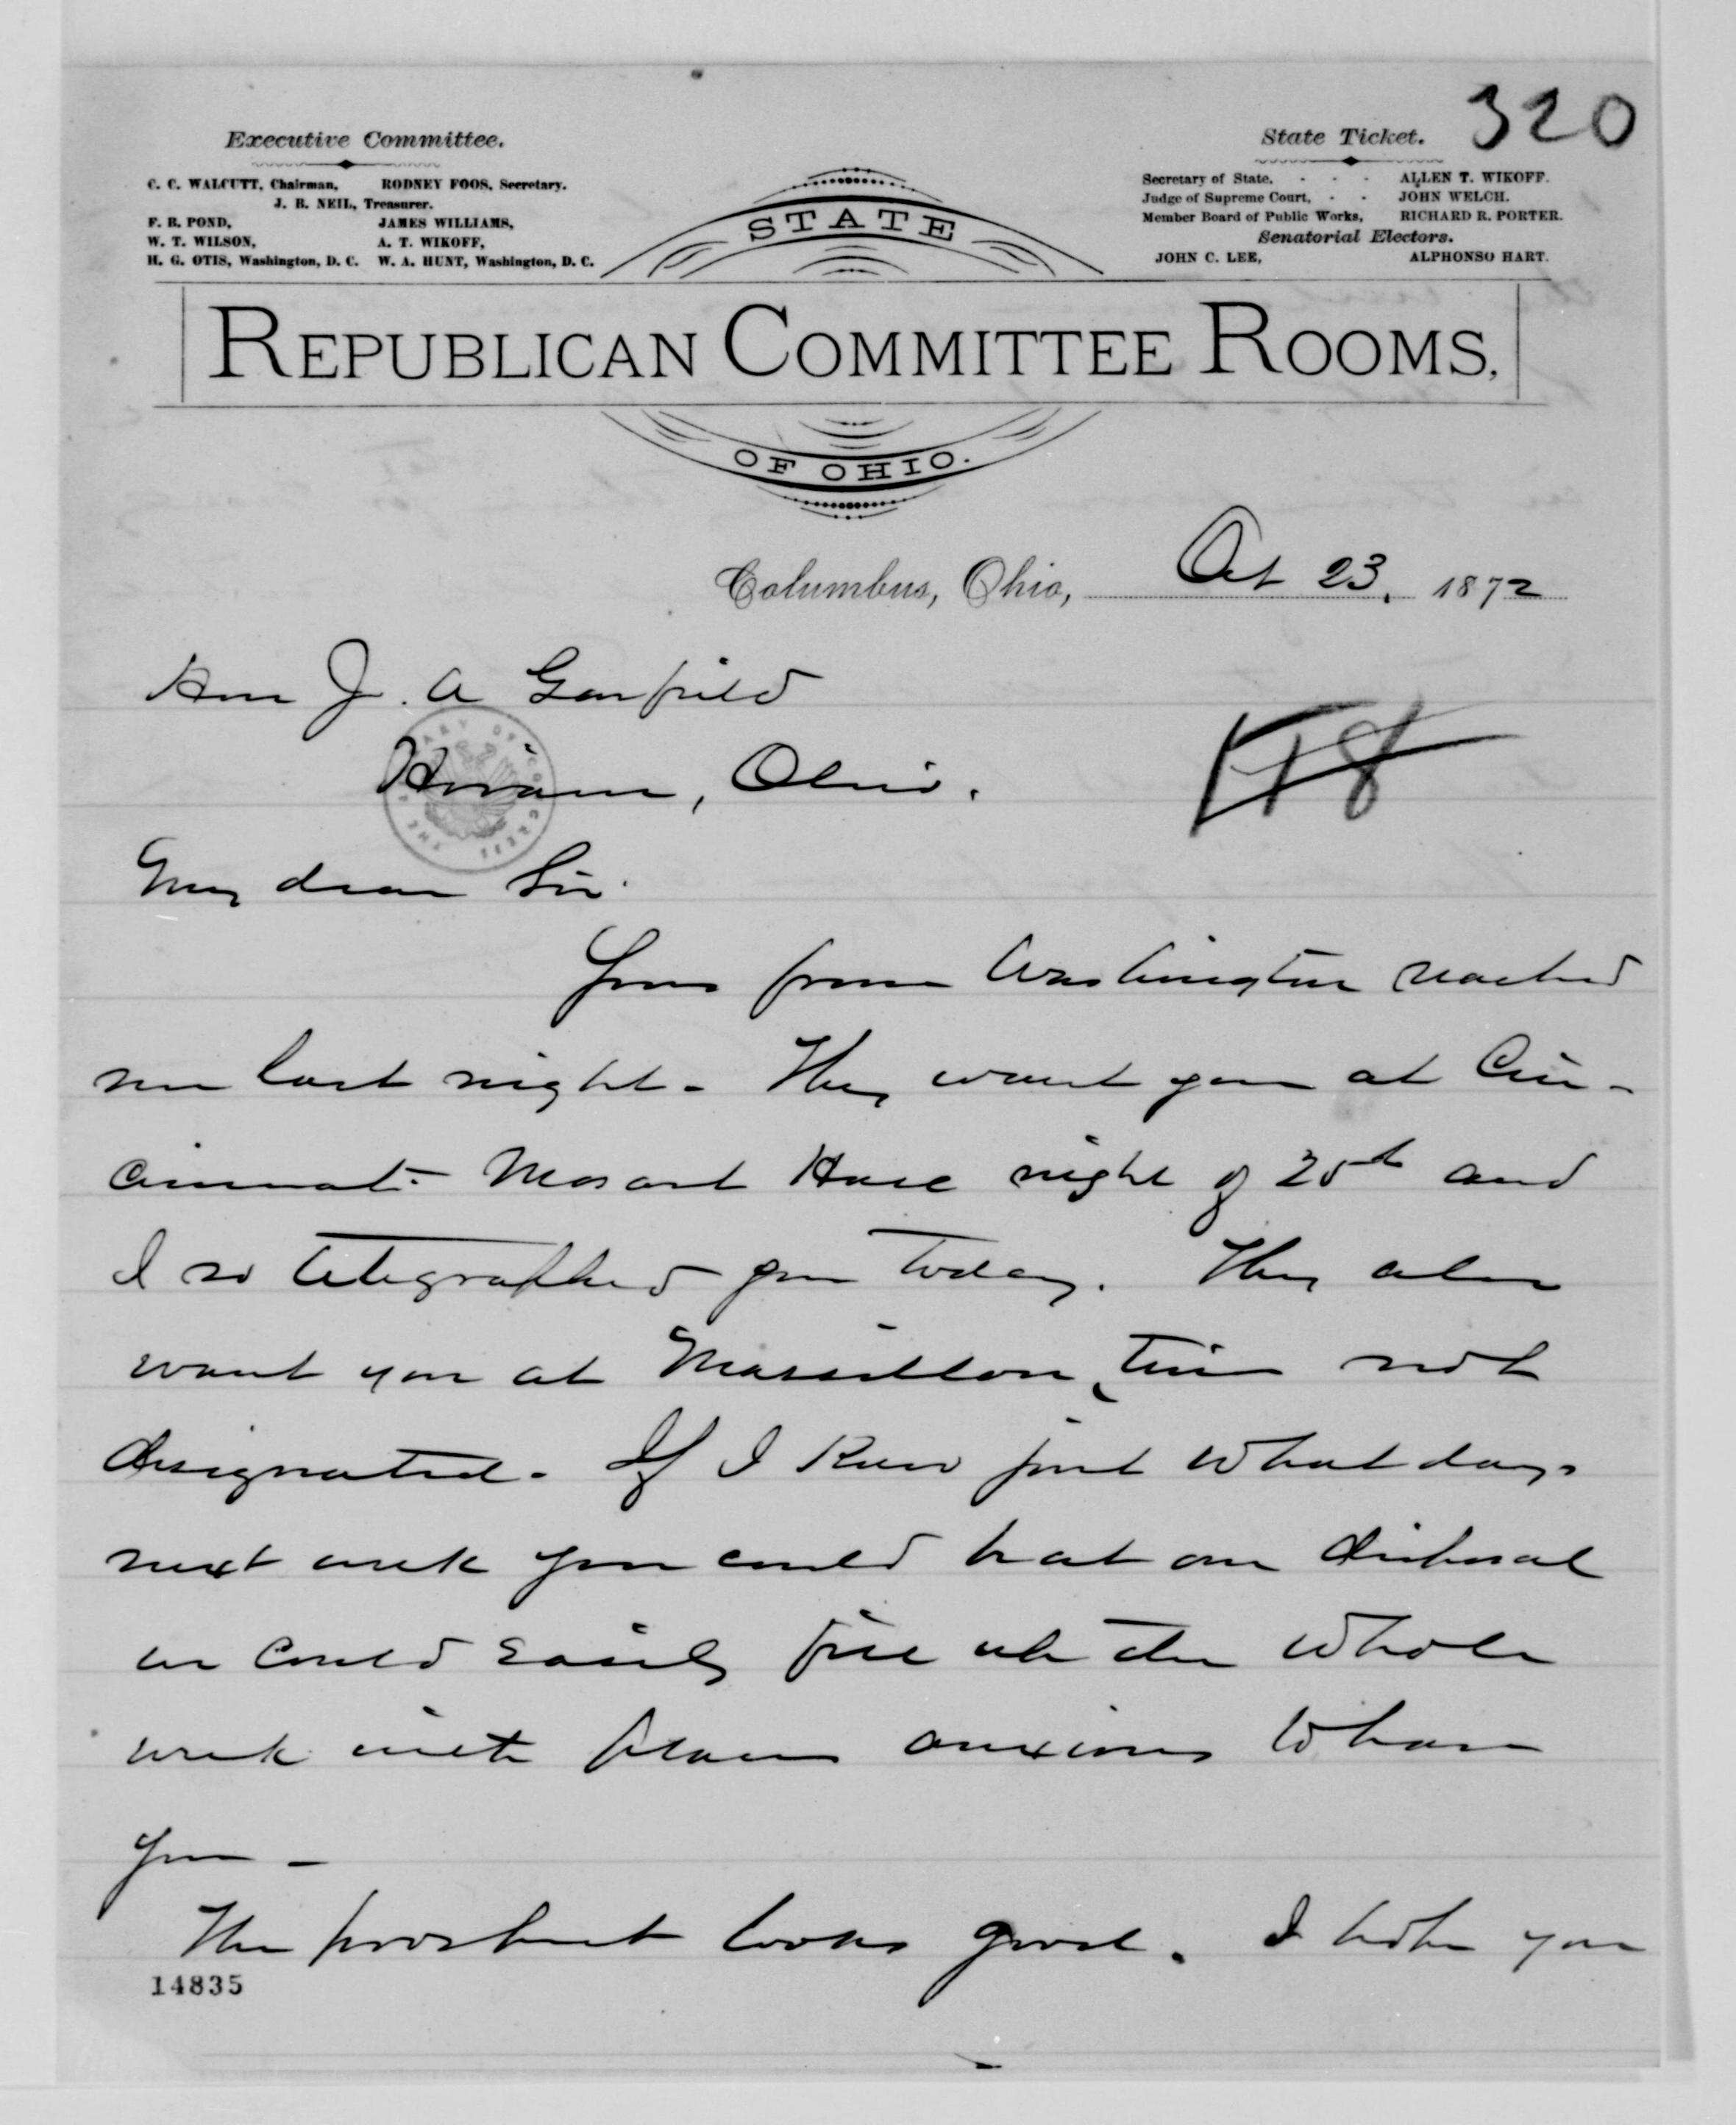 320
Executive Committee.
C. C. WALCUTT, Chairman, RODNEY FOOS, Secretary.
J. B. NEIL, Treasurer.
F. B. POND, JAMES WILLIAMS,
W. T. WILSON, A. T. WIKOFF,
H. G. OTIS, Washington, D. C. W. A. HUNT, Washington, D. C.
State Ticket.
Secretary of State, - - - ALLEN T. WIKOFF.
Judge of Supreme Court, - - JOHN WELCH.
Member Board of Public Works, RICHARD R. PORTER.
Senatorial Electors.
JOHN C. LEE, ALPHONSO HART.
STATE
REPUBLICAN COMMITTEE ROOMS,
OF OHIO.
Columbus, Ohio, Oct 23, 1872
Hon J. A Garfield
Hiram, Ohio.
118
THE LIBRARY OF CONGRESS
My dear Sir.
Yours from Washington reached
me last night. They want you at Cin-
cinnati - Mozart Hall night of 25th and
I so telegraphed you today. They also
want you at Massillon, time not
designated. If I knew just what days
next week you could be at our disposal
we could easily fill up the whole
week with places anxious to have
you -
The prospect looks good. I hope you
14835